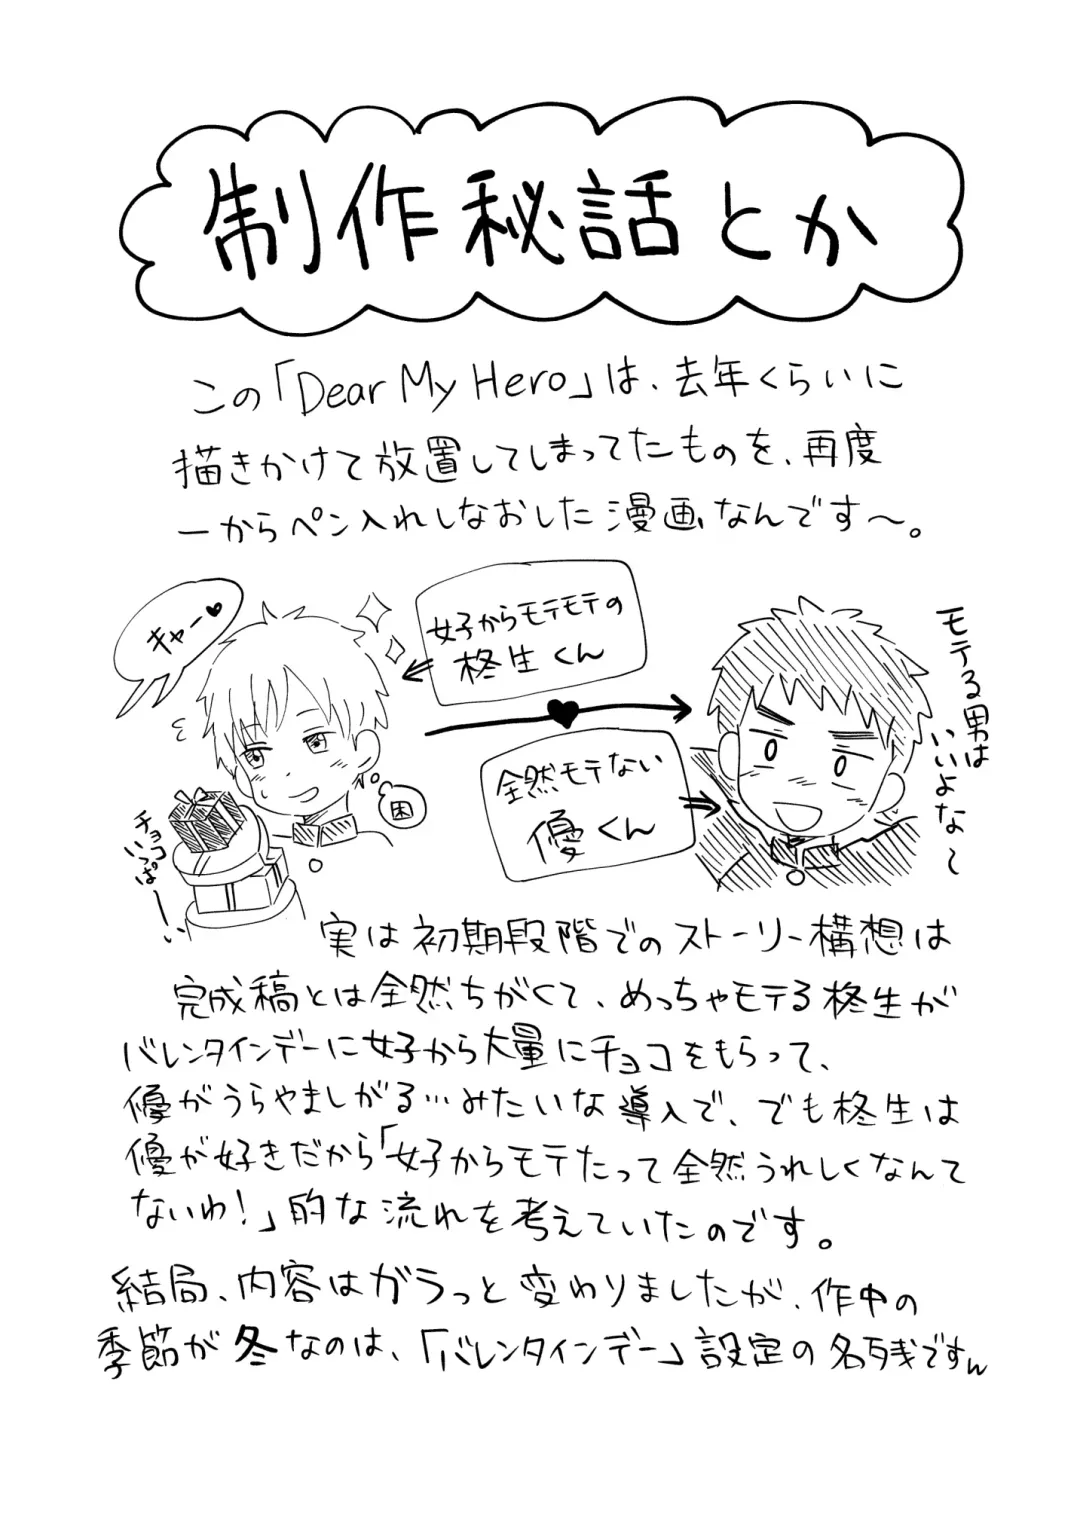 制作秘話とか
この「Dear My Hero」は、去年くらいに
描きかけて放置してしまってたものを、再度
一からペン入れしなおした漫画なんです〜。
キャー♥
女子からモテモテの
柊生くん
困
チョコ
いっぱーい
全然モテない
優くん
モテる男は
いいよな〜
実は初期段階でのストーリー構想は
完成稿とは全然ちがくて、めっちゃモテる柊生が
バレンタインデーに女子から大量にチョコをもらって、
優がうらやましがる…みたいな導入で、でも柊生は
優が好きだから「女子からモテたって全然うれしくなんて
ないわ!」的な流れを考えていたのです。
結局、内容はガラっと変わりましたが、作中の
季節が冬なのは、「バレンタインデー」設定の名残ですw